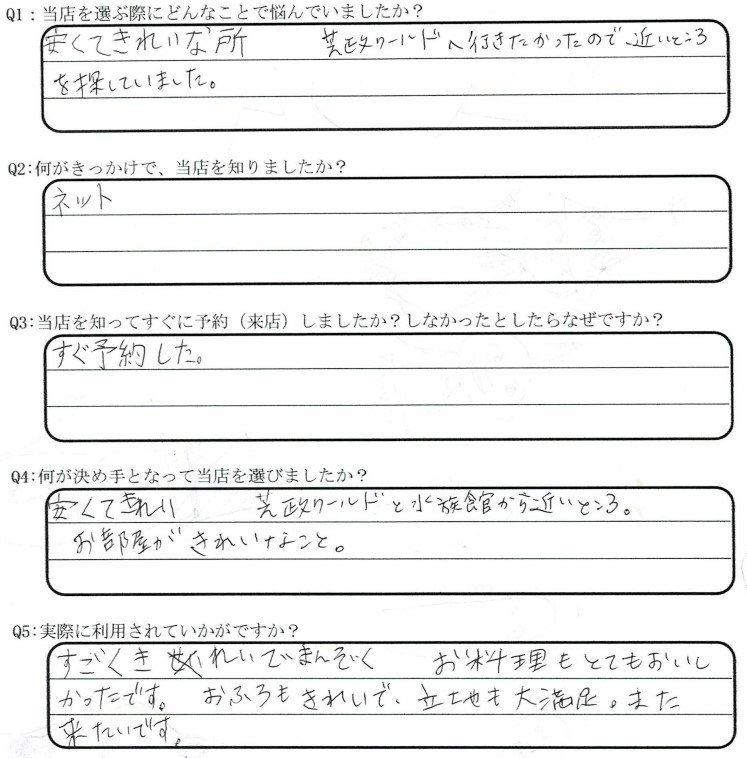 Q1:当店を選ぶ際にどんなことで悩んでいましたか？
安くてきれいな所　芝政ワールドへ行きたかったので、近いところ
を探していました。
Q2:何がきっかけで、当店を知りましたか？
ネット
Q3:当店を知ってすぐに予約（来店）しましたか？しなかったとしたらなぜですか？
すぐ予約した。
Q4:何が決め手となって当店を選びましたか？
安くてきれい　芝政ワールドと水族館から近いところ。
お部屋がきれいなこと。
Q5:実際に利用されていかがですか？
すごくきれいでまんぞく　お料理もとてもおいし
かったです。おふろもきれいで、立地も大満足。また
来たいです。